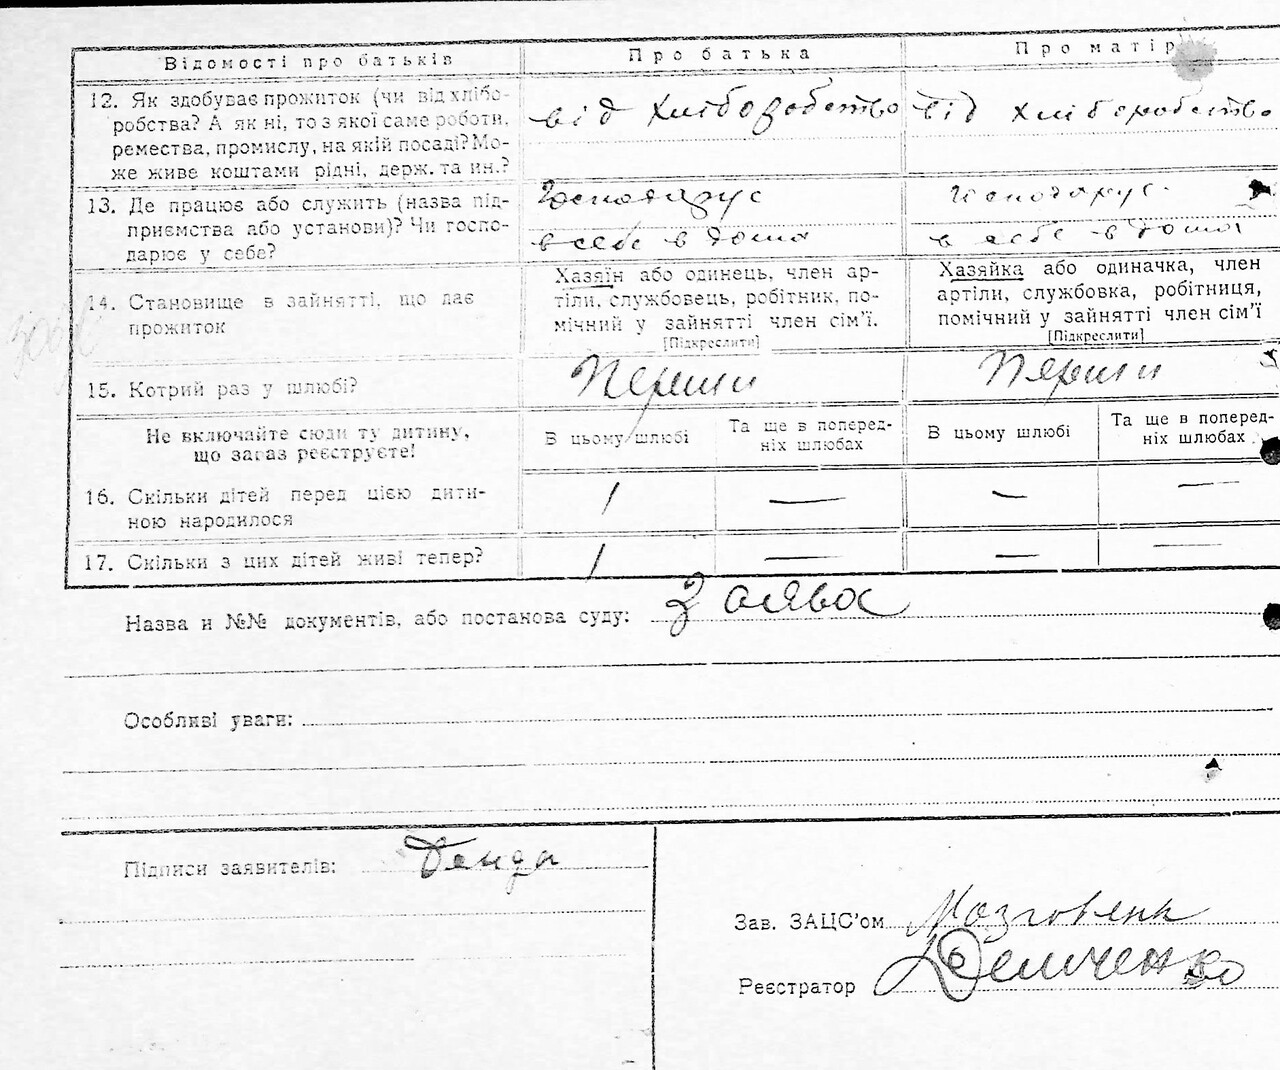 Відомості про батьків Про батька Про матір
12. Як здобуває прожиток (чи від хлібо-
робства? А як ні, то з якої саме роботи,
ремества, промислу, на якій посаді? Мо-
же живе коштами рідні, держ. та ин.?
від хліборобство від хліборобство
13. Де працює або служить (назва під-
приємства або установи)? Чи госпо-
дарює у себе?
Господарує
в себе в дома
Господарує
в себе в дома
14. Становище в зайнятті, що дає
прожиток
Хазяїн або одинець, член ар-
тіли, службовець, робітник, по-
мічний у зайнятті член сім’ї.
[Підкреслити]
Хазяйка або одиначка, член
артіли, службовка, робітниця,
помічний у зайнятті член сім’ї
[Підкреслити]
15. Котрий раз у шлюбі? Перши Перши
Не включайте сюди ту дитину,
що зараз реєструєте!
В цьому шлюбі
Та ще в поперед-
ніх шлюбах
В цьому шлюбі
Та ще в поперед-
ніх шлюбах
16. Скільки дітей перед цією дити-
ною народилося
1 — — —
17. Скільки з цих дітей живі тепер? 1 — — —
Назва и №№ документів, або постанова суду: Заява
Особливі уваги:
Підписи заявителів: Генда
Зав. ЗАЦС’ом
Реєстратор Демченко